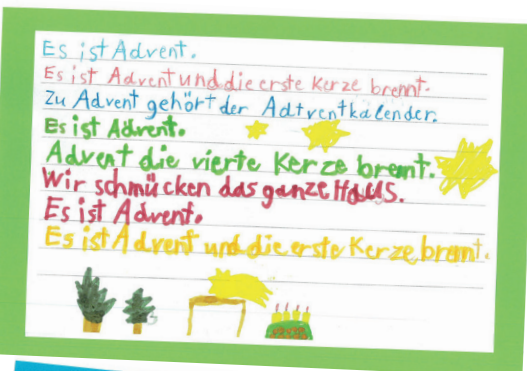 Es ist Advent.
Es ist Advent und die erste Kerze brennt.
Zu Advent gehört der Adtventkalender.
Es ist Advent.
Advent die vierte Kerze brennt.
Wir schmücken das ganze Haus.
Es ist Advent.
Es ist Advent und die erste Kerze brennt.